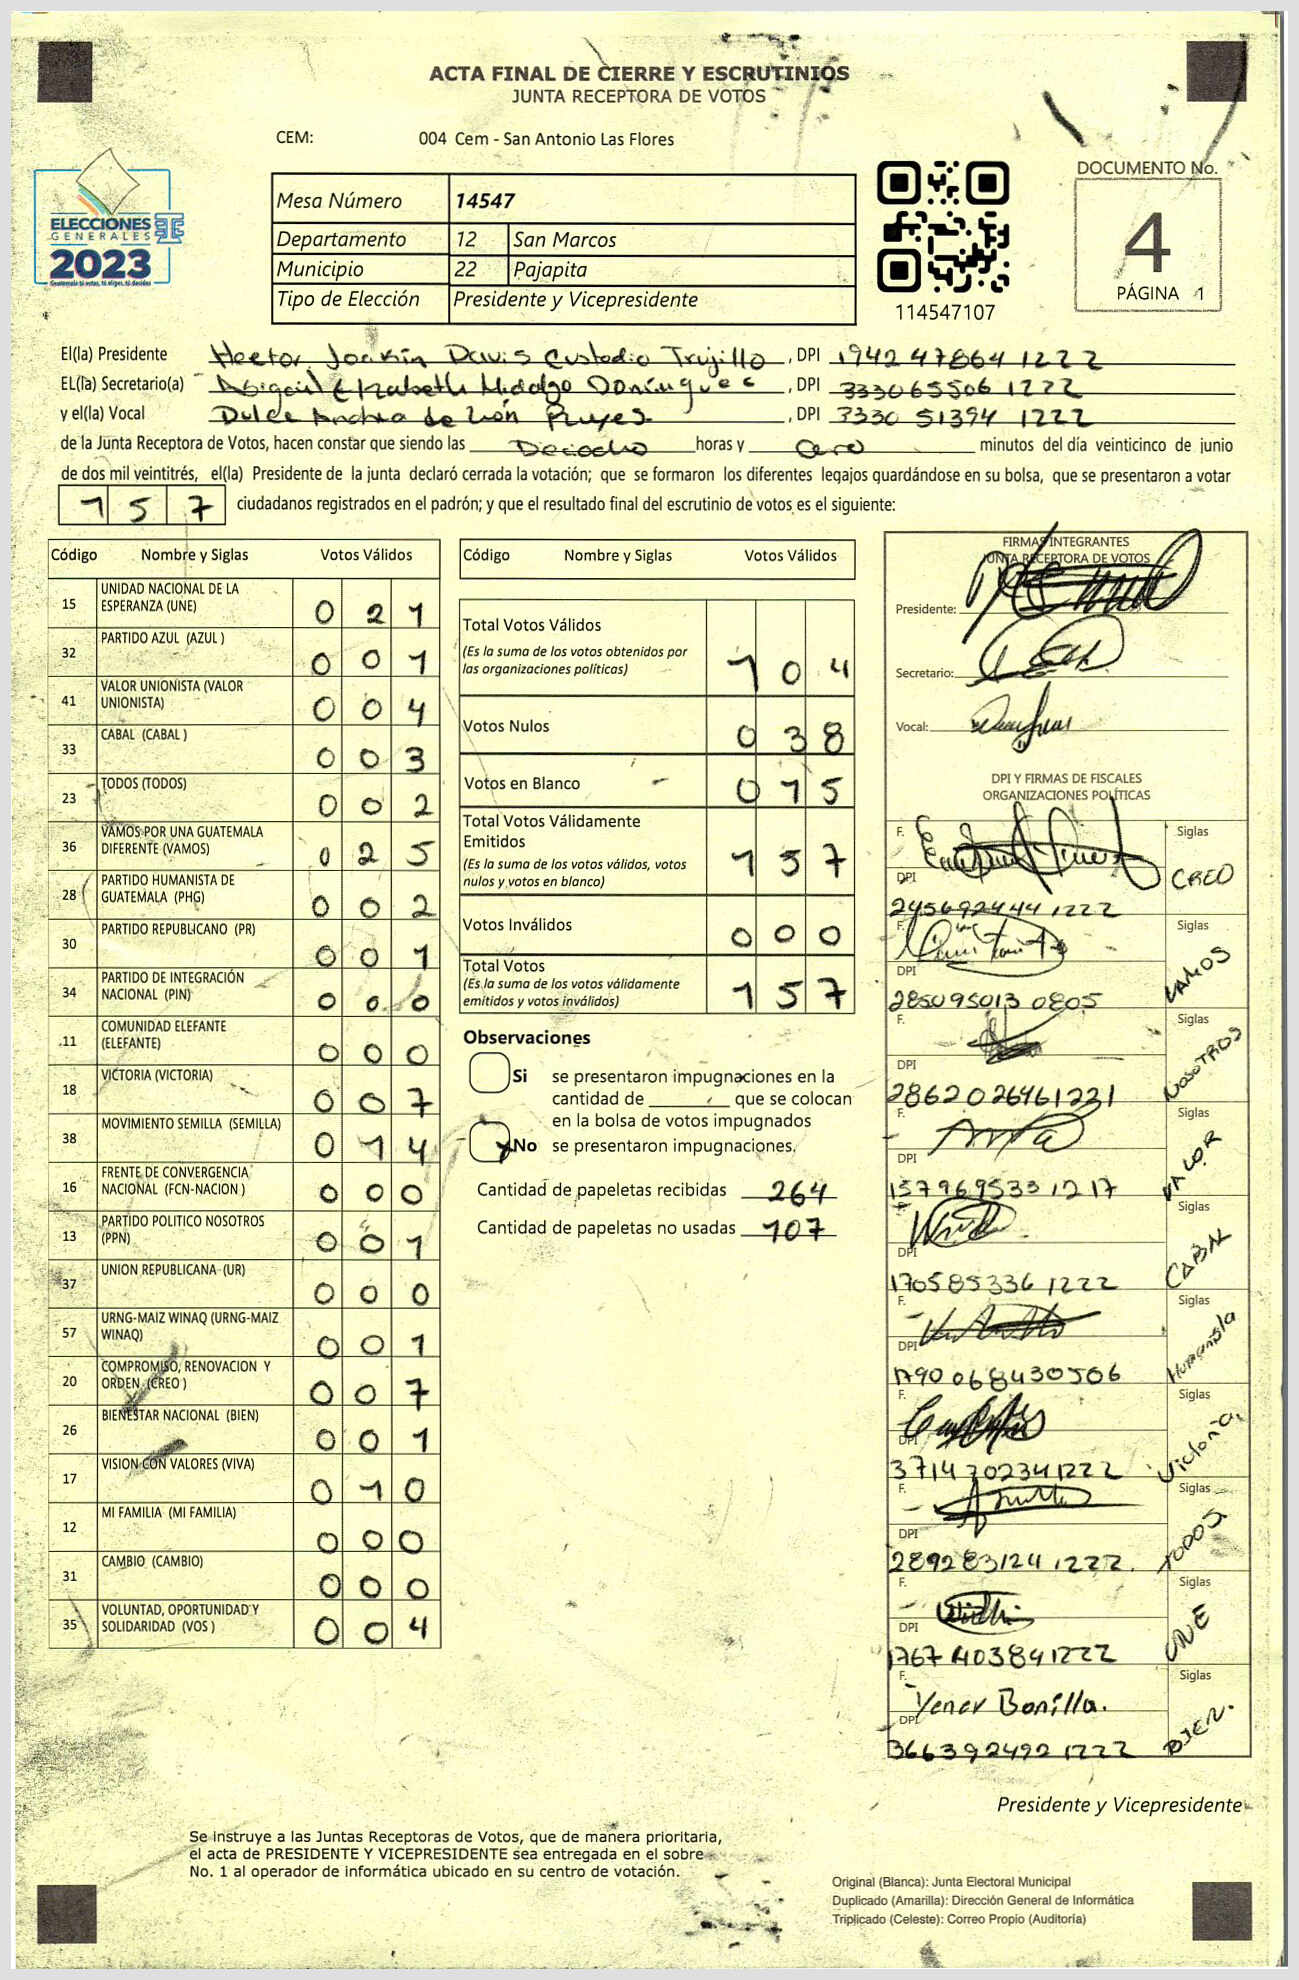 ACTA FINAL DE CIERRE Y ESCRUTINIOS
JUNTA RECEPTORA DE VOTOS
CEM: 004 Cem - San Antonio Las Flores
DOCUMENTO No.
4
PÁGINA 1
ELECCIONES
GENERALES
2023
Guatemala tú votas, tú eliges, tú decides
Mesa Número 14547
Departamento 12 San Marcos
Municipio 22 Pajapita
Tipo de Elección Presidente y Vicepresidente
114547107
El(la) Presidente Hector Joakin Davis Custodio Trujillo, DPI 1942 47864 1222
EL(la) Secretario(a) Abigail Elizabeth Hidalgo Domingues, DPI 333065506 1222
y el(la) Vocal Dulce Andrea de León Ruyes, DPI 3330 51394 1222
de la Junta Receptora de Votos, hacen constar que siendo las Deciocho horas y Cero minutos del día veinticinco de junio
de dos mil veintitrés, el(la) Presidente de la junta declaró cerrada la votación; que se formaron los diferentes legajos guardándose en su bolsa, que se presentaron a votar
157 ciudadanos registrados en el padrón; y que el resultado final del escrutinio de votos es el siguiente:
Código Nombre y Siglas Votos Válidos
15 UNIDAD NACIONAL DE LA ESPERANZA (UNE) 0 2 1
32 PARTIDO AZUL (AZUL ) 0 0 1
41 VALOR UNIONISTA (VALOR UNIONISTA) 0 0 4
33 CABAL (CABAL ) 0 0 3
23 TODOS (TODOS) 0 0 2
36 VAMOS POR UNA GUATEMALA DIFERENTE (VAMOS) 0 2 5
28 PARTIDO HUMANISTA DE GUATEMALA (PHG) 0 0 2
30 PARTIDO REPUBLICANO (PR) 0 0 1
34 PARTIDO DE INTEGRACIÓN NACIONAL (PIN) 0 0 0
11 COMUNIDAD ELEFANTE (ELEFANTE) 0 0 0
18 VICTORIA (VICTORIA) 0 0 7
38 MOVIMIENTO SEMILLA (SEMILLA) 0 1 4
16 FRENTE DE CONVERGENCIA NACIONAL (FCN-NACION ) 0 0 0
13 PARTIDO POLITICO NOSOTROS (PPN) 0 0 1
37 UNION REPUBLICANA (UR) 0 0 0
57 URNG-MAIZ WINAQ (URNG-MAIZ WINAQ) 0 0 1
20 COMPROMISO, RENOVACION Y ORDEN (CREO ) 0 0 7
26 BIENESTAR NACIONAL (BIEN) 0 0 1
17 VISION CON VALORES (VIVA) 0 1 0
12 MI FAMILIA (MI FAMILIA) 0 0 0
31 CAMBIO (CAMBIO) 0 0 0
35 VOLUNTAD, OPORTUNIDAD Y SOLIDARIDAD (VOS ) 0 0 4
Código Nombre y Siglas Votos Válidos
Total Votos Válidos
(Es la suma de los votos obtenidos por
las organizaciones políticas) 1 0 4
Votos Nulos 0 3 8
Votos en Blanco 0 1 5
Total Votos Válidamente
Emitidos
(Es la suma de los votos válidos, votos
nulos y votos en blanco) 1 5 7
Votos Inválidos 0 0 0
Total Votos
(Es la suma de los votos válidamente
emitidos y votos inválidos) 1 5 7
Observaciones
Si se presentaron impugnaciones en la
cantidad de ______ que se colocan
en la bolsa de votos impugnados
x No se presentaron impugnaciones.
Cantidad de papeletas recibidas 264
Cantidad de papeletas no usadas 107
FIRMAS INTEGRANTES
JUNTA RECEPTORA DE VOTOS
Presidente:
Secretario:
Vocal:
DPI Y FIRMAS DE FISCALES
ORGANIZACIONES POLÍTICAS
F. Siglas
DPI CREO
245692444 1222
F. Siglas
DPI VAMOS
285095013 0805
F. Siglas
DPI NOSOTROS
2862026461221
F. Siglas
DPI VALOR
157969533 1217
F. Siglas
DPI CABAL
170585336 1222
F. Siglas
DPI Humanista
1790068430506
F. Siglas
DPI Victoria
3714702341222
F. Siglas
DPI TODOS
289283124 1222.
F. Siglas
DPI UNE
1767403841222
F. Yener Bonilla. Siglas
DPI BIEN.
366392492 1222
Presidente y Vicepresidente
Se instruye a las Juntas Receptoras de Votos, que de manera prioritaria,
el acta de PRESIDENTE Y VICEPRESIDENTE sea entregada en el sobre
No. 1 al operador de informática ubicado en su centro de votación.
Original (Blanca): Junta Electoral Municipal
Duplicado (Amarilla): Dirección General de Informática
Triplicado (Celeste): Correo Propio (Auditoría)